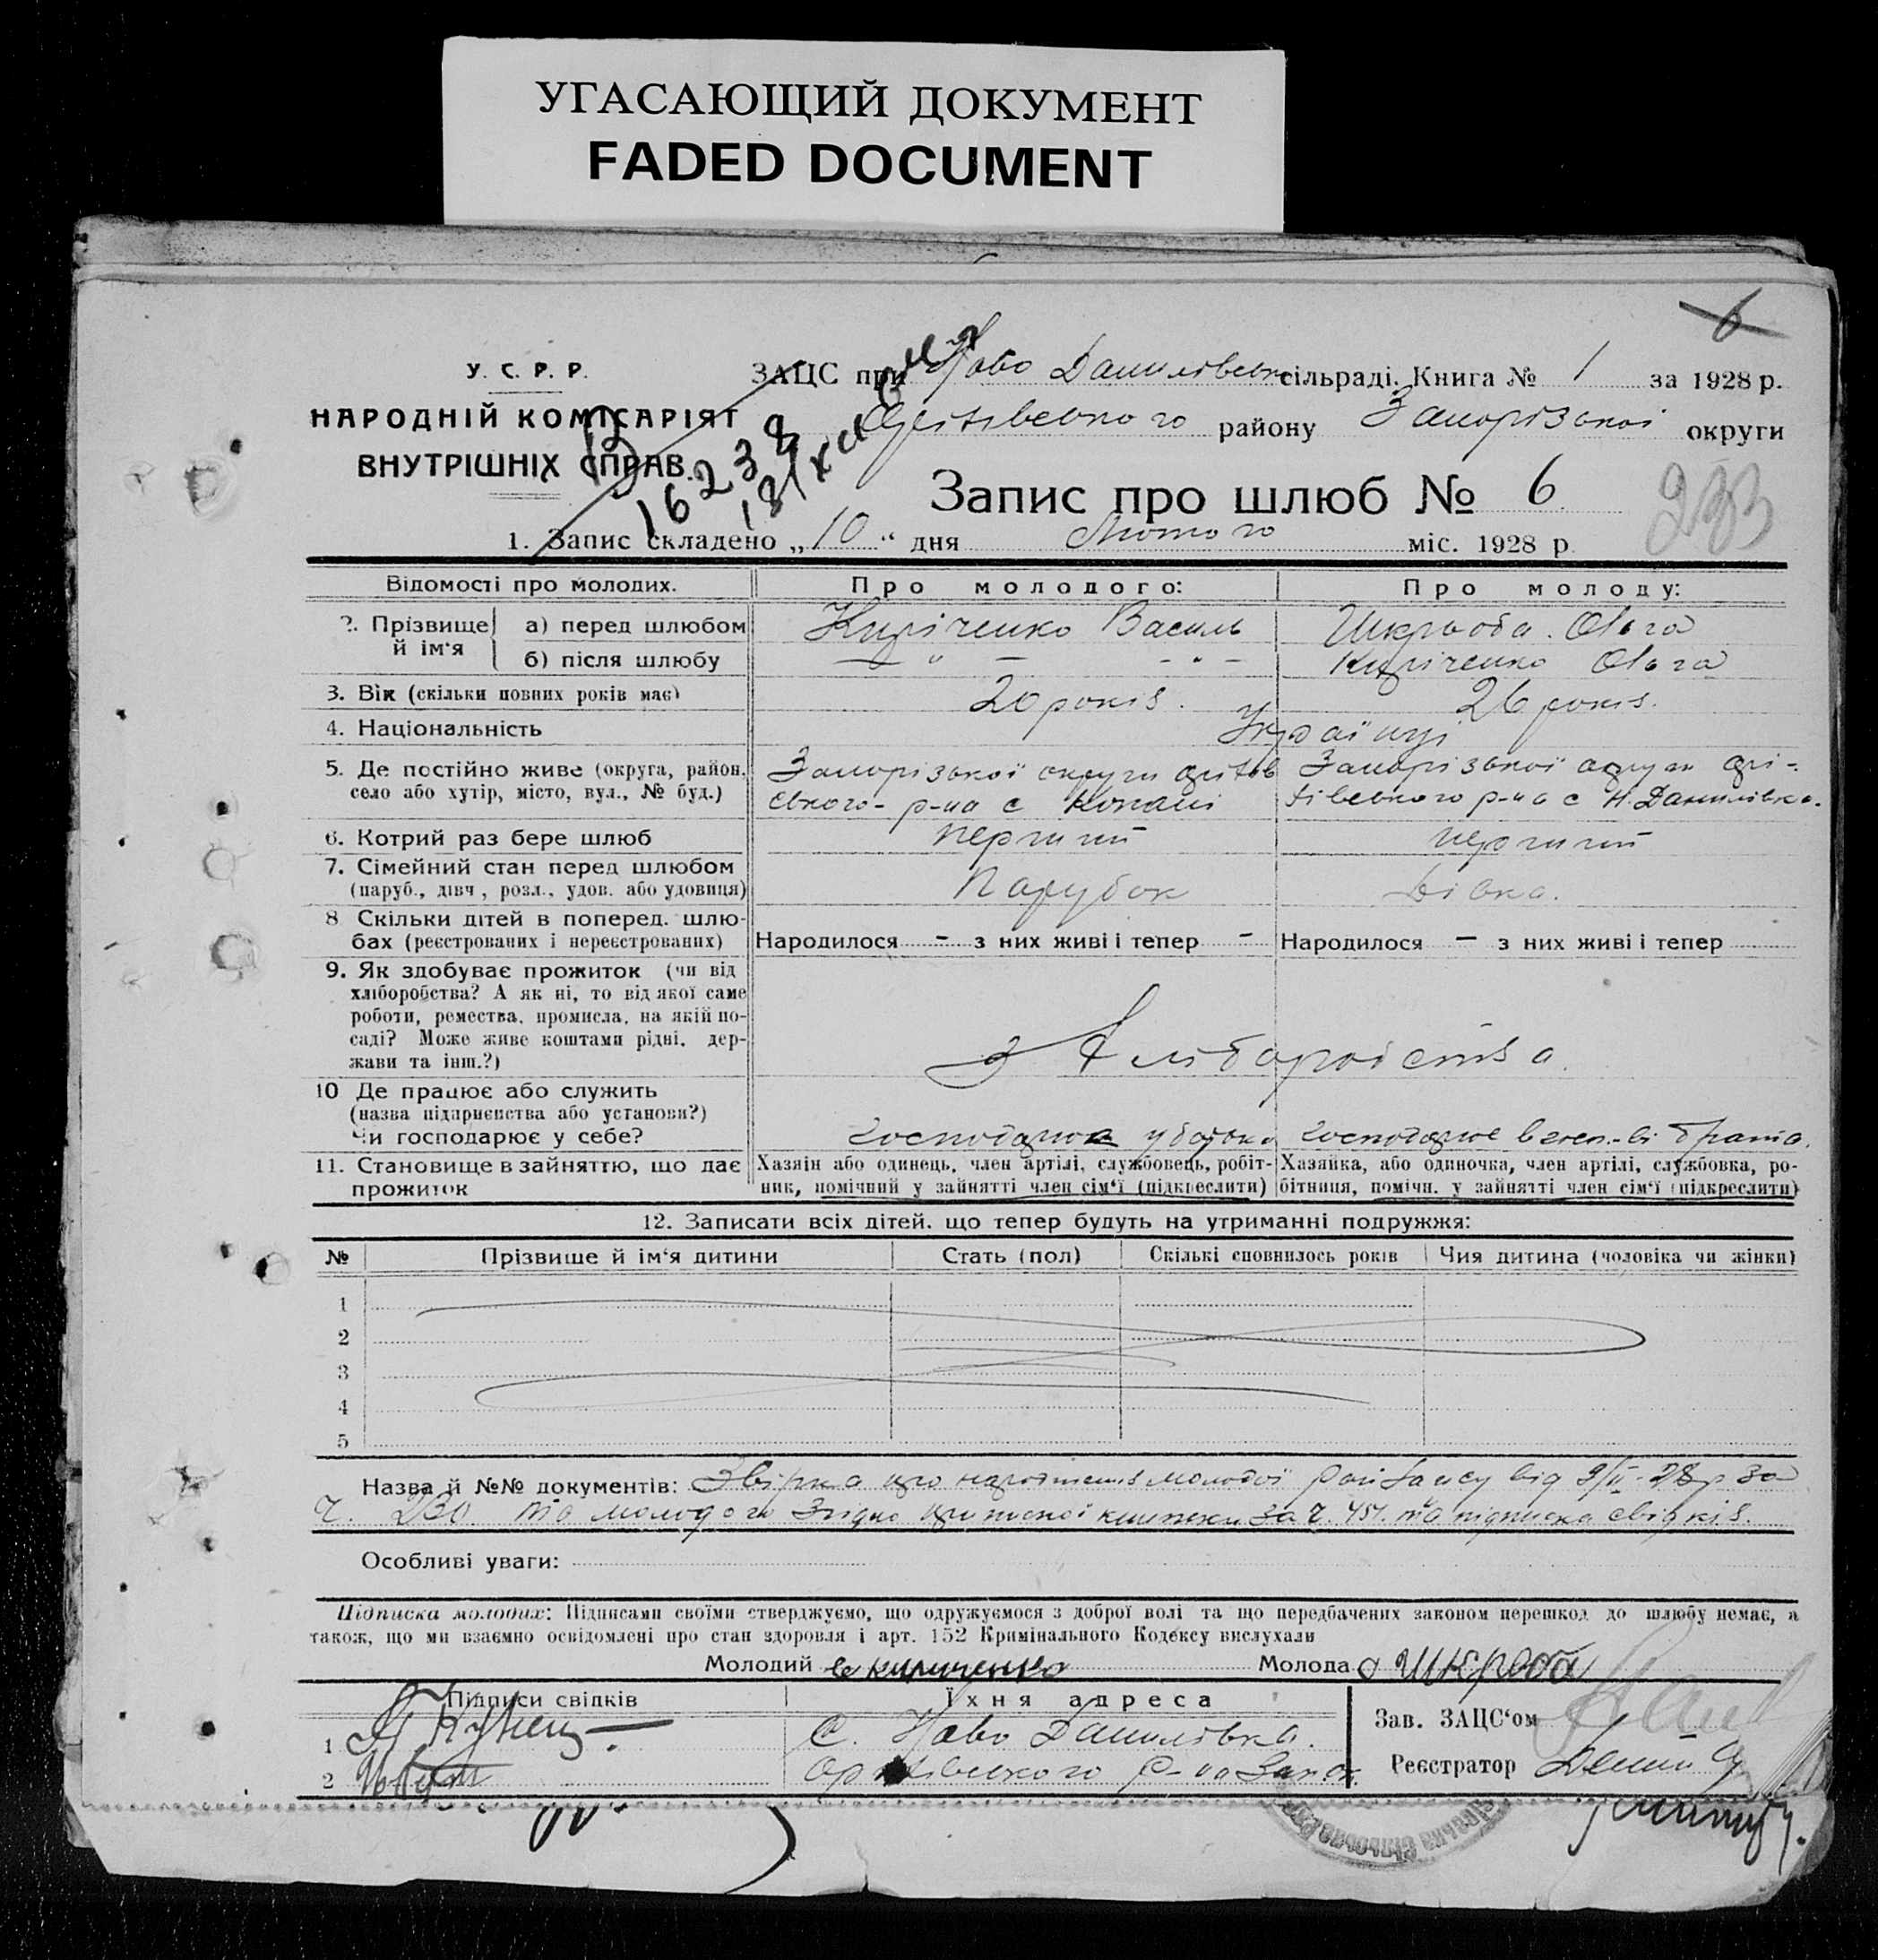 УГАСАЮЩИЙ ДОКУМЕНТ
FADED DOCUMENT
6
У. С. Р. Р.
НАРОДНІЙ КОМІСАРІЯТ
ВНУТРІШНІХ СПРАВ.
16238
ЗАЦС при Ново Данилівськ сільраді. Книга № 1 за 1928 р.
Оріхівського району Запорізької округи
Запис про шлюб № 6
233
1. Запис складено „10“ дня Лютого міс. 1928 р.
Відомості про молодих. Про молодого: Про молоду:
2. Прізвище й ім‘я
а) перед шлюбом Киріченко Василь Шкр оба. Ольга
б) після шлюбу — " — - " - Киріченко Ольга
3. Вік (скільки повних років має) 20 років. 26 років.
4. Національність Українці
5. Де постійно живе (округа, район, Запорізької округи оріхів Запорізької округи орі-
село або хутір, місто, вул., № буд.) ського- р-на с Копані хівського р-на с Н. Данилівка.
6. Котрий раз бере шлюб перший перший
7. Сімейний стан перед шлюбом Парубок Дівка.
(паруб., дівч , розл., удов. або удовиця)
8 Скільки дітей в поперед. шлю-
бах (реєстрованих і нереєстрованих) Народилося - з них живі і тепер - Народилося - з них живі і тепер
9. Як здобуває прожиток (чи від
хліборобства? А як ні, то від якої саме
роботи, ремества, промисла, на якій по-
саді? Може живе коштами рідні, дер-
жави та інш.?) з Хліборобства.
10 Де працює або служить
(назва підприємства або установи?)
Чи господарює у себе? господарює у батька господарює в госп.-ві брата.
11. Становище в зайняттю, що дає Хазяїн або одинець, член артілі, службовець, робіт- Хазяйка, або одиночка, член артілі, службовка, ро-
прожиток ник, помічний у зайнятті член сім‘ї (підкреслити) бітниця, помічн. у зайнятті член сім‘ї (підкреслити)
12. Записати всіх дітей. що тепер будуть на утриманні подружжя:
№ Прізвище й ім‘я дитини Стать (пол) Скількі сповнилось років Чия дитина (чоловіка чи жінки)
1
2
3
4
5
Назва й №№ документів: Звірка про народження молодої рай Зацсу від 9/II-28 р за
Ч. 230 та молодого Згідно приписної книжки за Ч. 451. та підписка свідків.
Особливі уваги:
Підписка молодих: Підписами своїми стверджуємо, що одружуємося з доброї волі та що передбачених законом перешкод до шлюбу немає, а
також, що ми взаємно освідомлені про стан здоровля і арт. 152 Кримінального Кодексу вислухали
Молодий в кириченко Молода О Шкроба
Підписи свідків Їхня адреса
1 Кунец С. Ново Данилівка.
2 Оріхівського Р-на Запок.
Зав. ЗАЦС‘ом
Реєстратор